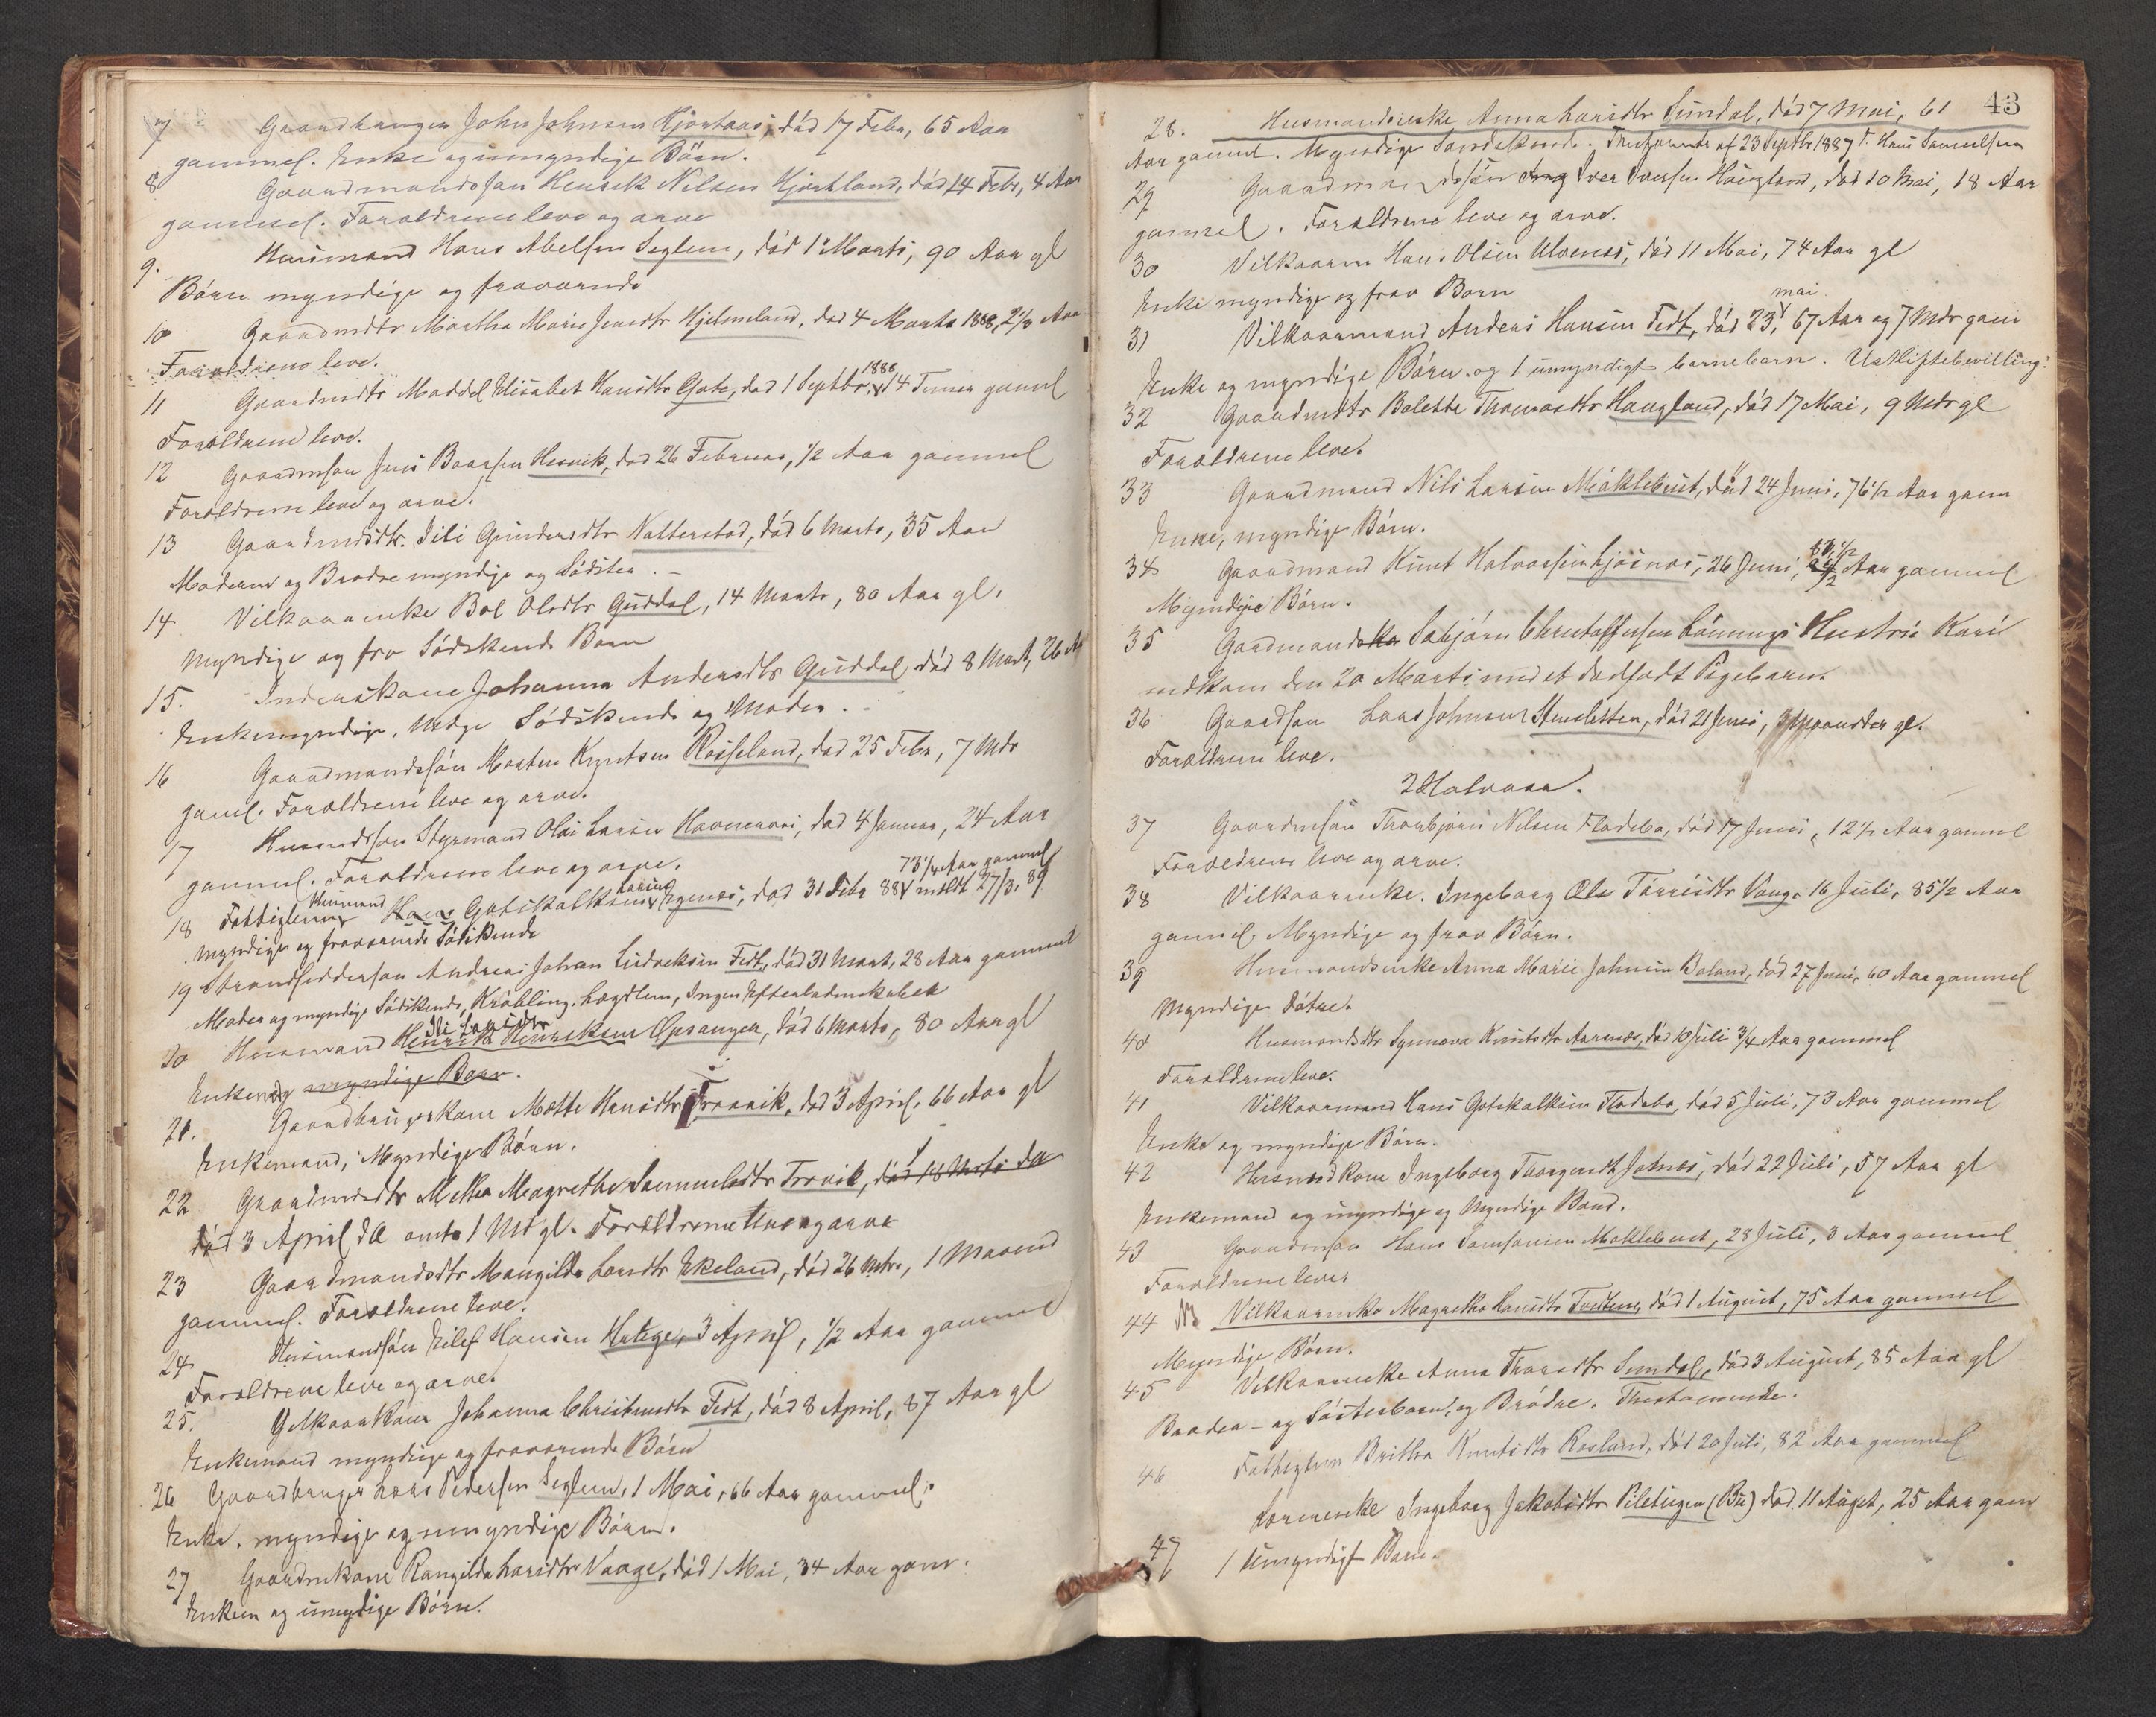 7 Gaardbruger John Johnsen Hjortaas, død 17 Febr, 65 Aar
gammel. Enke og umyndige Børn.
8 Gaardmandsøn Henrik Nilsen Hjortland, død 14 Febr, 4 Aar
gammel. Forældrene leve og arve
9. Husmand Hans Abelsen Seglem, død 1 Marts, 90 Aar gl
Børn myndige og fraværende
10 Gaardmdtr Martha Marie Jensdtr Hjelmeland, død 4 Marts 1888, 2½ Aar
Forældrene leve.
11 Gaardmdtr Maddel Elisabet Hansdtr Gate, død 1 Septbr, 1888 14 Timer gammel
Forældrene leve.
12 Gaardmsøn Jens Baarsen Hesvik, død 26 Februar, ½ Aar gammel
Forældrene leve og arve.
13 Gaardmdtr. Sili Gundersdtr Natterstad, død 6 Marts, 35 Aar
Moderen og Brødre myndige og Søster. –
14 Vilkaarenke Bol Olsdtr Guddal, 14 Marts, 80 Aar gl.
Myndige og fra Sødskende Børn
15. Inderstkone Johanna Andersdtr Guddal død 8 Mart, 26 A
Enkemyndige, Sødskende og Moder. –
16 Gaardmandssøn Morten Knutsen Rosseland, død 25 Febr, 7 Mdr
gamel. Forældrene leve og arve.
17 Husmdssøn Styrmand Olai Larsen Havneraas, død 4 Januar, 24 Aar
gammel. Forældrene leve og arve.
73¼ Aar gammel
18 Fattiglem Husmand Hans Gotskalksen Larsens Egenes, død 31 Debr 88 meldt 27/3. 89
myndige og fraværende Sødskende
19 Strandsiddersøn Andreas Johan Ludveksen Fedt, død 31 Mart, 28 Aar gammel
Moder og myndige Sødskende, Krøbling, Lægdlem, Ingen Efterladenskaber
Sili Larsdtr
20 Husmand Henrik Henreksen Opsanger, død 6 Marts, 80 Aar gl
Enkem og myndige Børn.
21. Gaardbrugerkone Mette Hansdtr Trovik, død 3 April, 66 Aar gl
Enkemand, Myndige Børn.
22 Gaardmdsdtr Metha Magrethe Samuelsdtr Trovik, død 18 Marts da
død 3 April da omtr 1 Md gl. Forældrene leve og arve
23 Gaardmandsdtr Mangilda Larsdtr Ekeland, død 26 Mtrs, 1 Maaned
gammel. Forældrene leve.
24 Husmandssøn Eilef Hansen Hatege, 3 April, ½ Aar gammel
Forældrene leve og arve.
25. Vilkaarkone Johanna Christensdtr Fedt, død 8 April, 87 Aar gl
Enkemand myndige og fraværende Børn
26 Gaardbruger Lars Pedersen Seglem, 1 Mai, 66 Aar gammel.
Enke, myndige og umyndige Børn.
27 Gaardmkone Rangilda Larsdtr Vaage, død 1 Mai, 34 Aar gam.
Enkem og umydige Børn.
43
28. Husmandsenke Anna Larsdtr Sundal, død 7 Mai, 61
Aar gammel. Myndige Sødskende. Thestamente af 23 Septbr 1887 t. Hans Samuelsen
29 Gaardmandssøn Iver Iversen Haugland, død 10 Mai, 18 Aar
gammel. Forældrene leve og arve.
30 Vilkaarm Hans Olsen Ulvenes, død 11 Mai, 74 Aar gl
Enke myndige og frav Børn
31 Vilkaarmand Anders Hansen Fedt, død 23, mai 67 Aar og 7 Mdr gam
Enke og myndige Børn. og 1 umyndigt barnebarn. Uskiftebevilling.
32 Gaardmdtr Bolette Thomasdtr Haugland, død 17 Mai, 9 Mdr gl
Forældrene leve.
33 Gaardmand Nils Larsen Møklebust, død 24 Juni, 76½ Aar gam
Enke, myndige Børn.
34 Gaardmand Knut Halvorsen Ljosnes, 26 Juni, 80½ Aar gammel
Myndige Børn.
35 Gardmandska Sæbjørn Christoffersen Lønnings Hustru Kari
nedkom den 20 Marts med et dødfødt Pigebarn.
36 Gaardsøn Lars Johnsen Stusletten, død 21 Juni, 3 Maaneder gl.
Forældrene leve.
2 Halvaar.
37 Gaardmsøn Thorbjørn Nilsen Fladebø, død 17 Juni, 12½ Aar gammel
Forældrene leve og arve.
38 Vilkaarenke. Ingeborg Ols Tørrisdtr Vaag. 16 Juli, 85½ Aar
gammel. Myndige og frav Børn.
39 Husmandsenke Anna Marie Johnsen Boland, død 27 Juni, 60 Aar gammel
Myndige Døtre.
40 Husmandsdtr Synneva Knutsdtr Aarsnes, død 10 Juli ¾ Aar gammel
Forældrene leve.
41 Vilkaarmand Hans Gotskalksen Fladebø, død 5 Juli, 73 Aar gammel
Enke og myndige Børn.
42 Husmdkone Ingeborg Thorgersdt Jøsnæs, død 22 Juli, 57 Aar gl
Enkemand og umyndige og Myndige Børn.
43 Gaardmsøn Hans Samsonsen Møklebust, 28 Juli, 3 Aar gammel
Forældrene lever
44 Vilkaarenke Magretha Hansdtr Tveitene, død 1 August, 75 Aar gammel
Myndige Børn.
45 Vilkaarenke Anna Thorsdtr Sundal, død 3 August, 85 Aar gl
Broder- og Søsterbørn, og Brødre. Thestamente.
46 Fattiglem Brittha Knutsdtr Rosland, død 20 Juli, 82 Aar gammel
47 Ingeborg Jakobsdtr Piletugen (Bu) død 11 Augst, 25 Aar gam
1 Umyndigt Barn.